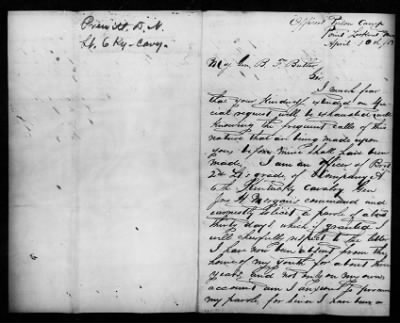 Prewitt D. N.
Lt. 6 Ky. Cavy.
Officers Prison Camp
Point Lookout Md
April 10th
Maj Gen B. F. Butler
Sir
I much fear
that your kindness extended on spe
cial request will be exhausted
Knowing the frequent calls of this
nature that are being made upon
you before mine shall have been
made. I am an officer of Rank
2d Lt grade of Company A
6th Kentucky Cavalry Gen
Jno H Morgan's command and
earnestly solicit a parole of about
thirty days which if granted I
will cheerfully respect to the letter
I have now been absent from the
home of my youth for about two
years and not only on my own
account am I anxious to procure
my parole, for since I have been a